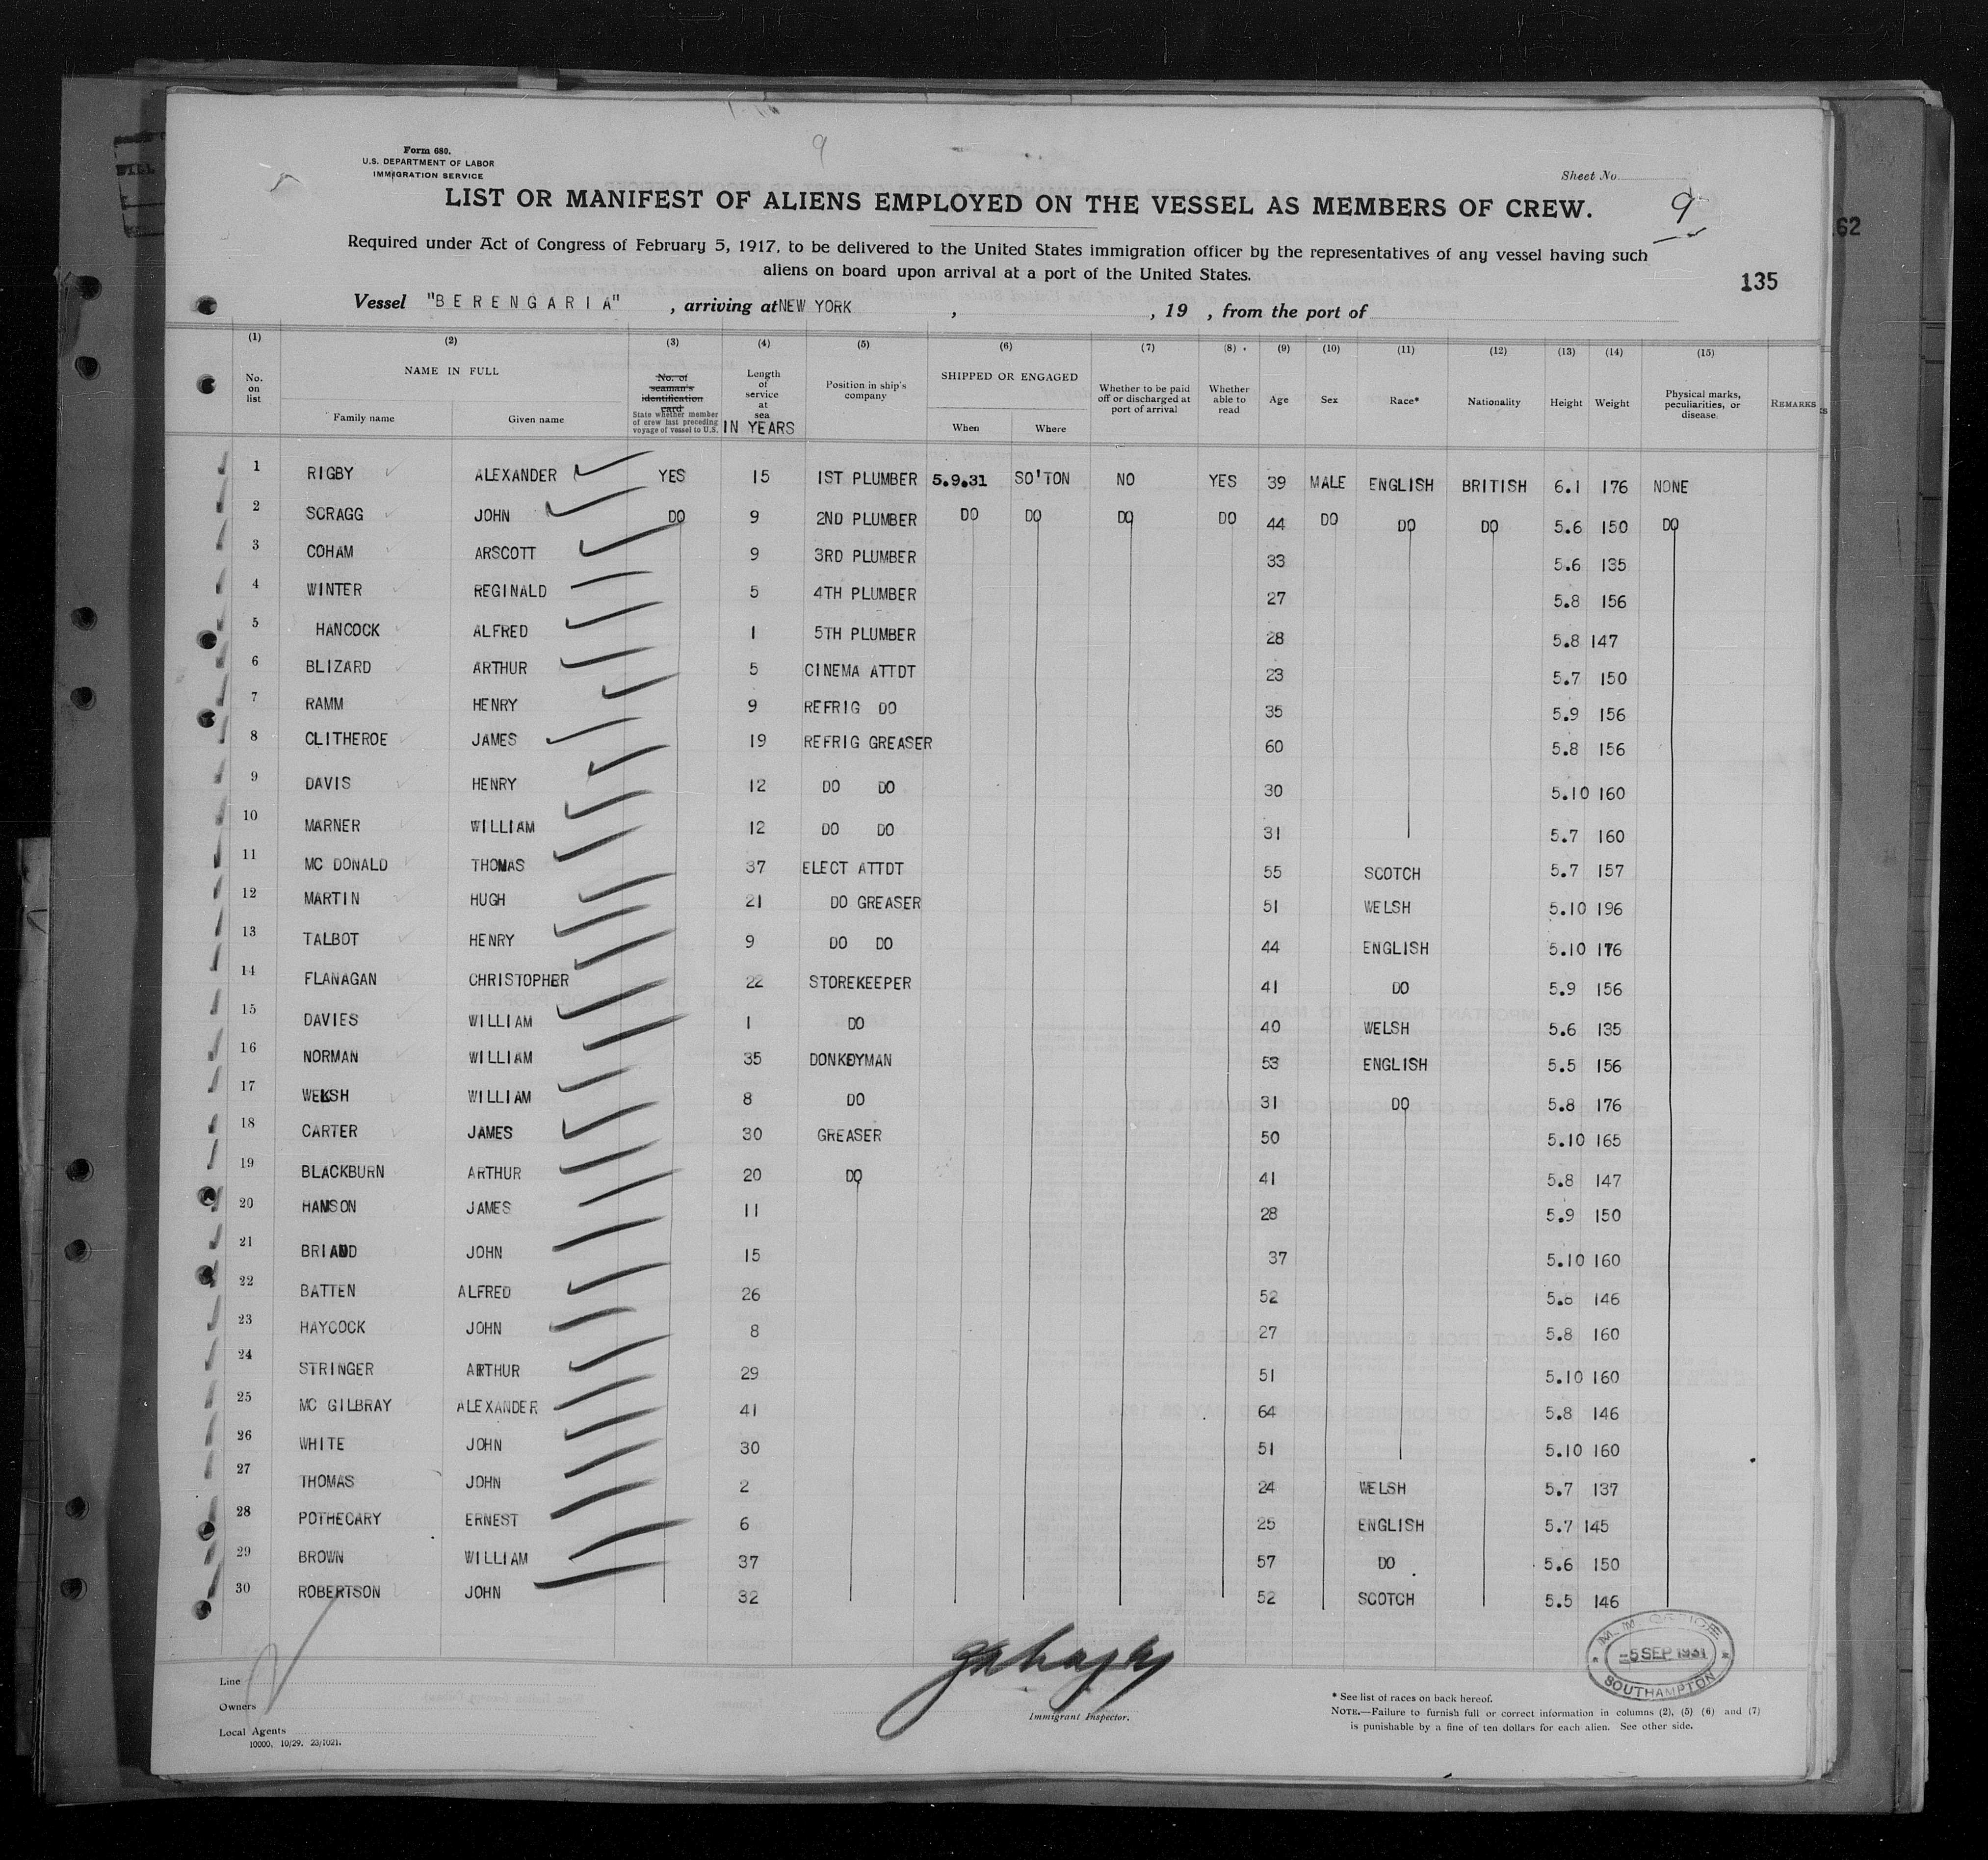 9
Form 680.
U.S. DEPARTMENT OF LABOR
IMMIGRATION SERVICE
Sheet No.
9
LIST OR MANIFEST OF ALIENS EMPLOYED ON THE VESSEL AS MEMBERS OF CREW.
Required under Act of Congress of February 5, 1917, to be delivered to the United States immigration officer by the representatives of any vessel having such
aliens on board upon arrival at a port of the United States.
62
135
Vessel "BERENGARIA" , arriving at NEW YORK , , 19 , from the port of
(1) (2) (3) (4) (5) (6) (7) (8) (9) (10) (11) (12) (13) (14) (15)
No. on list NAME IN FULL Family name Given name No. of seaman's identification card State whether member of crew last preceding voyage of vessel to U.S. Length of service at sea IN YEARS Position in ship's company SHIPPED OR ENGAGED When Where Whether to be paid off or discharged at port of arrival Whether able to read Age Sex Race* Nationality Height Weight Physical marks, peculiarities, or disease. REMARKS
1 RIGBY ALEXANDER YES 15 1ST PLUMBER 5.9.31 SO'TON NO YES 39 MALE ENGLISH BRITISH 6.1 176 NONE
2 SCRAGG JOHN DO 9 2ND PLUMBER DO DO DO DO 44 DO DO DO 5.6 150 DO
3 COHAM ARSCOTT 9 3RD PLUMBER 33 5.6 135
4 WINTER REGINALD 5 4TH PLUMBER 27 5.8 156
5 HANCOCK ALFRED 1 5TH PLUMBER 28 5.8 147
6 BLIZARD ARTHUR 5 CINEMA ATTDT 23 5.7 150
7 RAMM HENRY 9 REFRIG DO 35 5.9 156
8 CLITHEROE JAMES 19 REFRIG GREASER 60 5.8 156
9 DAVIS HENRY 12 DO DO 30 5.10 160
10 MARNER WILLIAM 12 DO DO 31 5.7 160
11 MC DONALD THOMAS 37 ELECT ATTDT 55 SCOTCH 5.7 157
12 MARTIN HUGH 21 DO GREASER 51 WELSH 5.10 196
13 TALBOT HENRY 9 DO DO 44 ENGLISH 5.10 176
14 FLANAGAN CHRISTOPHER 22 STOREKEEPER 41 DO 5.9 156
15 DAVIES WILLIAM 1 DO 40 WELSH 5.6 135
16 NORMAN WILLIAM 35 DONKEYMAN 53 ENGLISH 5.5 156
17 WELSH WILLIAM 8 DO 31 DO 5.8 176
18 CARTER JAMES 30 GREASER 50 5.10 165
19 BLACKBURN ARTHUR 20 DO 41 5.8 147
20 HANSON JAMES 11 28 5.9 150
21 BRIAND JOHN 15 37 5.10 160
22 BATTEN ALFRED 26 52 5.8 146
23 HAYCOCK JOHN 8 27 5.8 160
24 STRINGER ARTHUR 29 51 5.10 160
25 MC GILBRAY ALEXANDER 41 64 5.8 146
26 WHITE JOHN 30 51 5.10 160
27 THOMAS JOHN 2 24 WELSH 5.7 137
28 POTHECARY ERNEST 6 25 ENGLISH 5.7 145
29 BROWN WILLIAM 37 57 DO 5.6 150
30 ROBERTSON JOHN 32 52 SCOTCH 5.5 146
M.M. OFFICE
-5 SEP 1931
SOUTHAMPTON
Line
Owners
Local Agents
10000, 10/29. 23/1021.
Immigrant Inspector.
* See list of races on back hereof.
NOTE.—Failure to furnish full or correct information in columns (2), (5) (6) and (7)
is punishable by a fine of ten dollars for each alien. See other side.